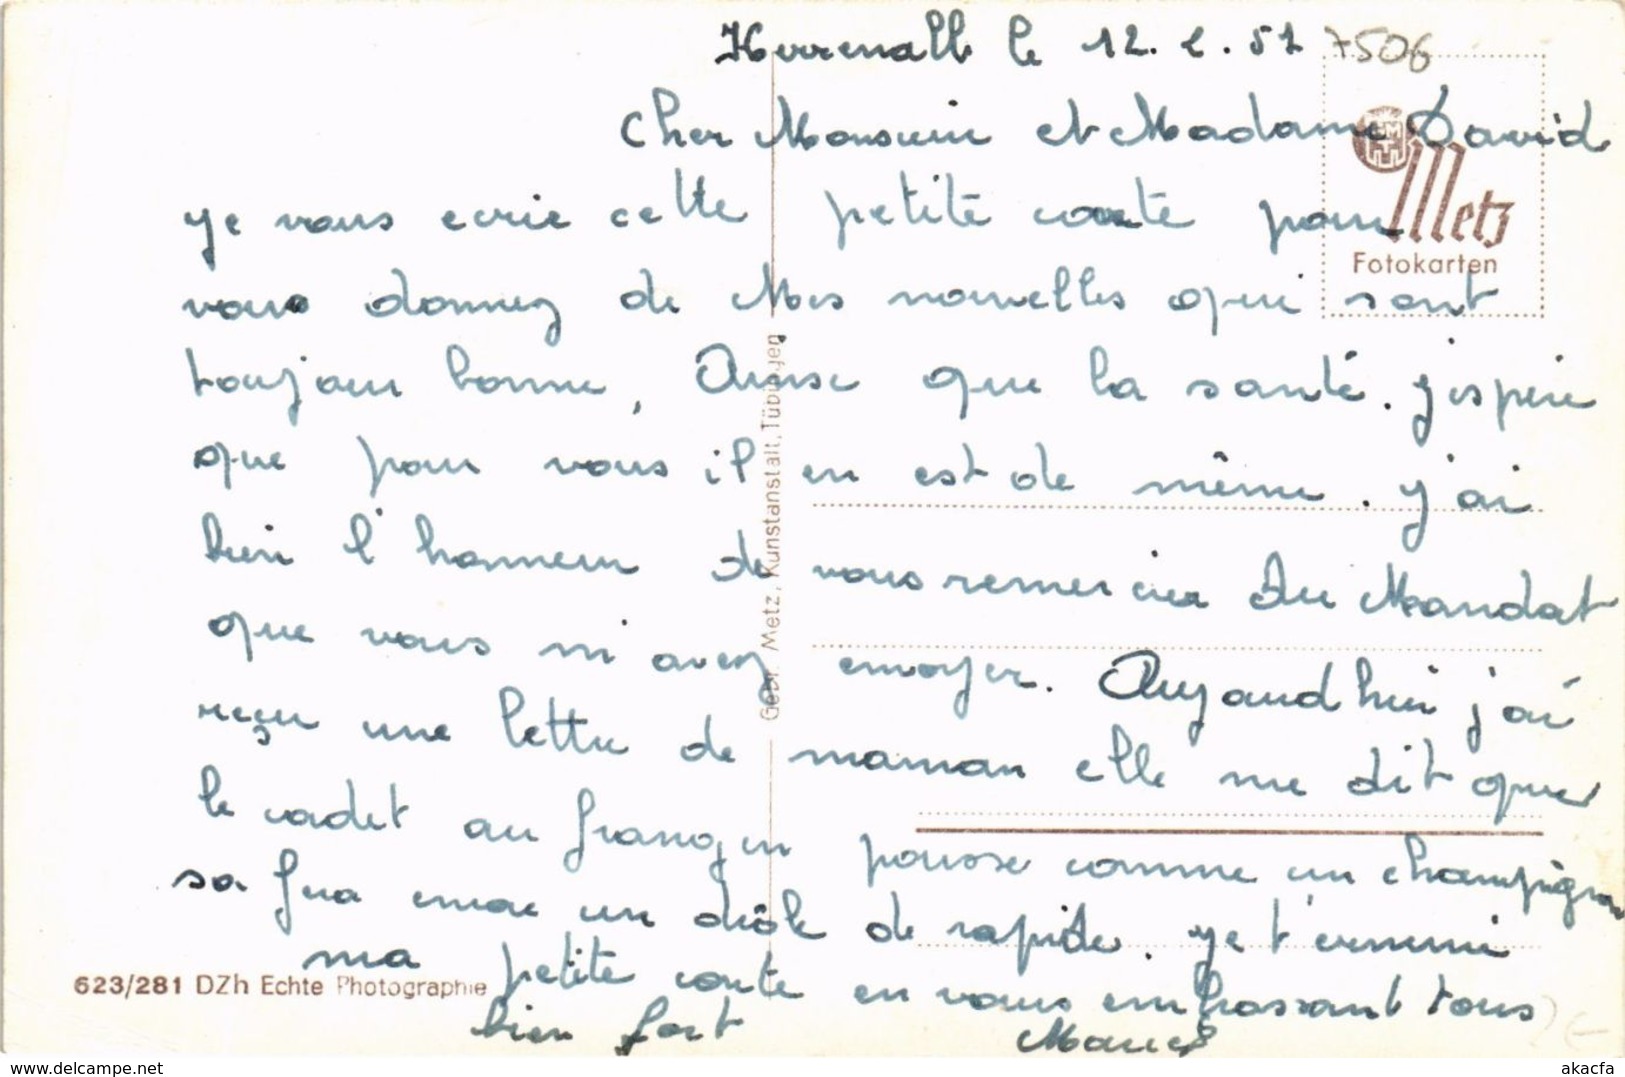 Herrenalb le 12. 2. 51 7506
Cher Monsieur et Madame David
je vous ecrie cette petite carte pour
vous donnez de Mes nouvelles qui sont
toujour bonne, Ainse que la santé. j'espère
que pour vous il en est de même. j'ai
bien l'honneur de vous remercier Du Mandat
que vous m'avez envoyer. Aujourd hui j'ai
reçu une lettre de maman elle me dit que
le cadet au frangin pousse comme un champignon
sa fera encore un drôle de rapide. je termine
ma petite carte en vous embrassant tous
bien fort
Metz
Fotokarten
Gebr. Metz, Kunstanstalt, Tübingen
623/281 DZh Echte Photographie
http://www.delcampe.net
akacfa